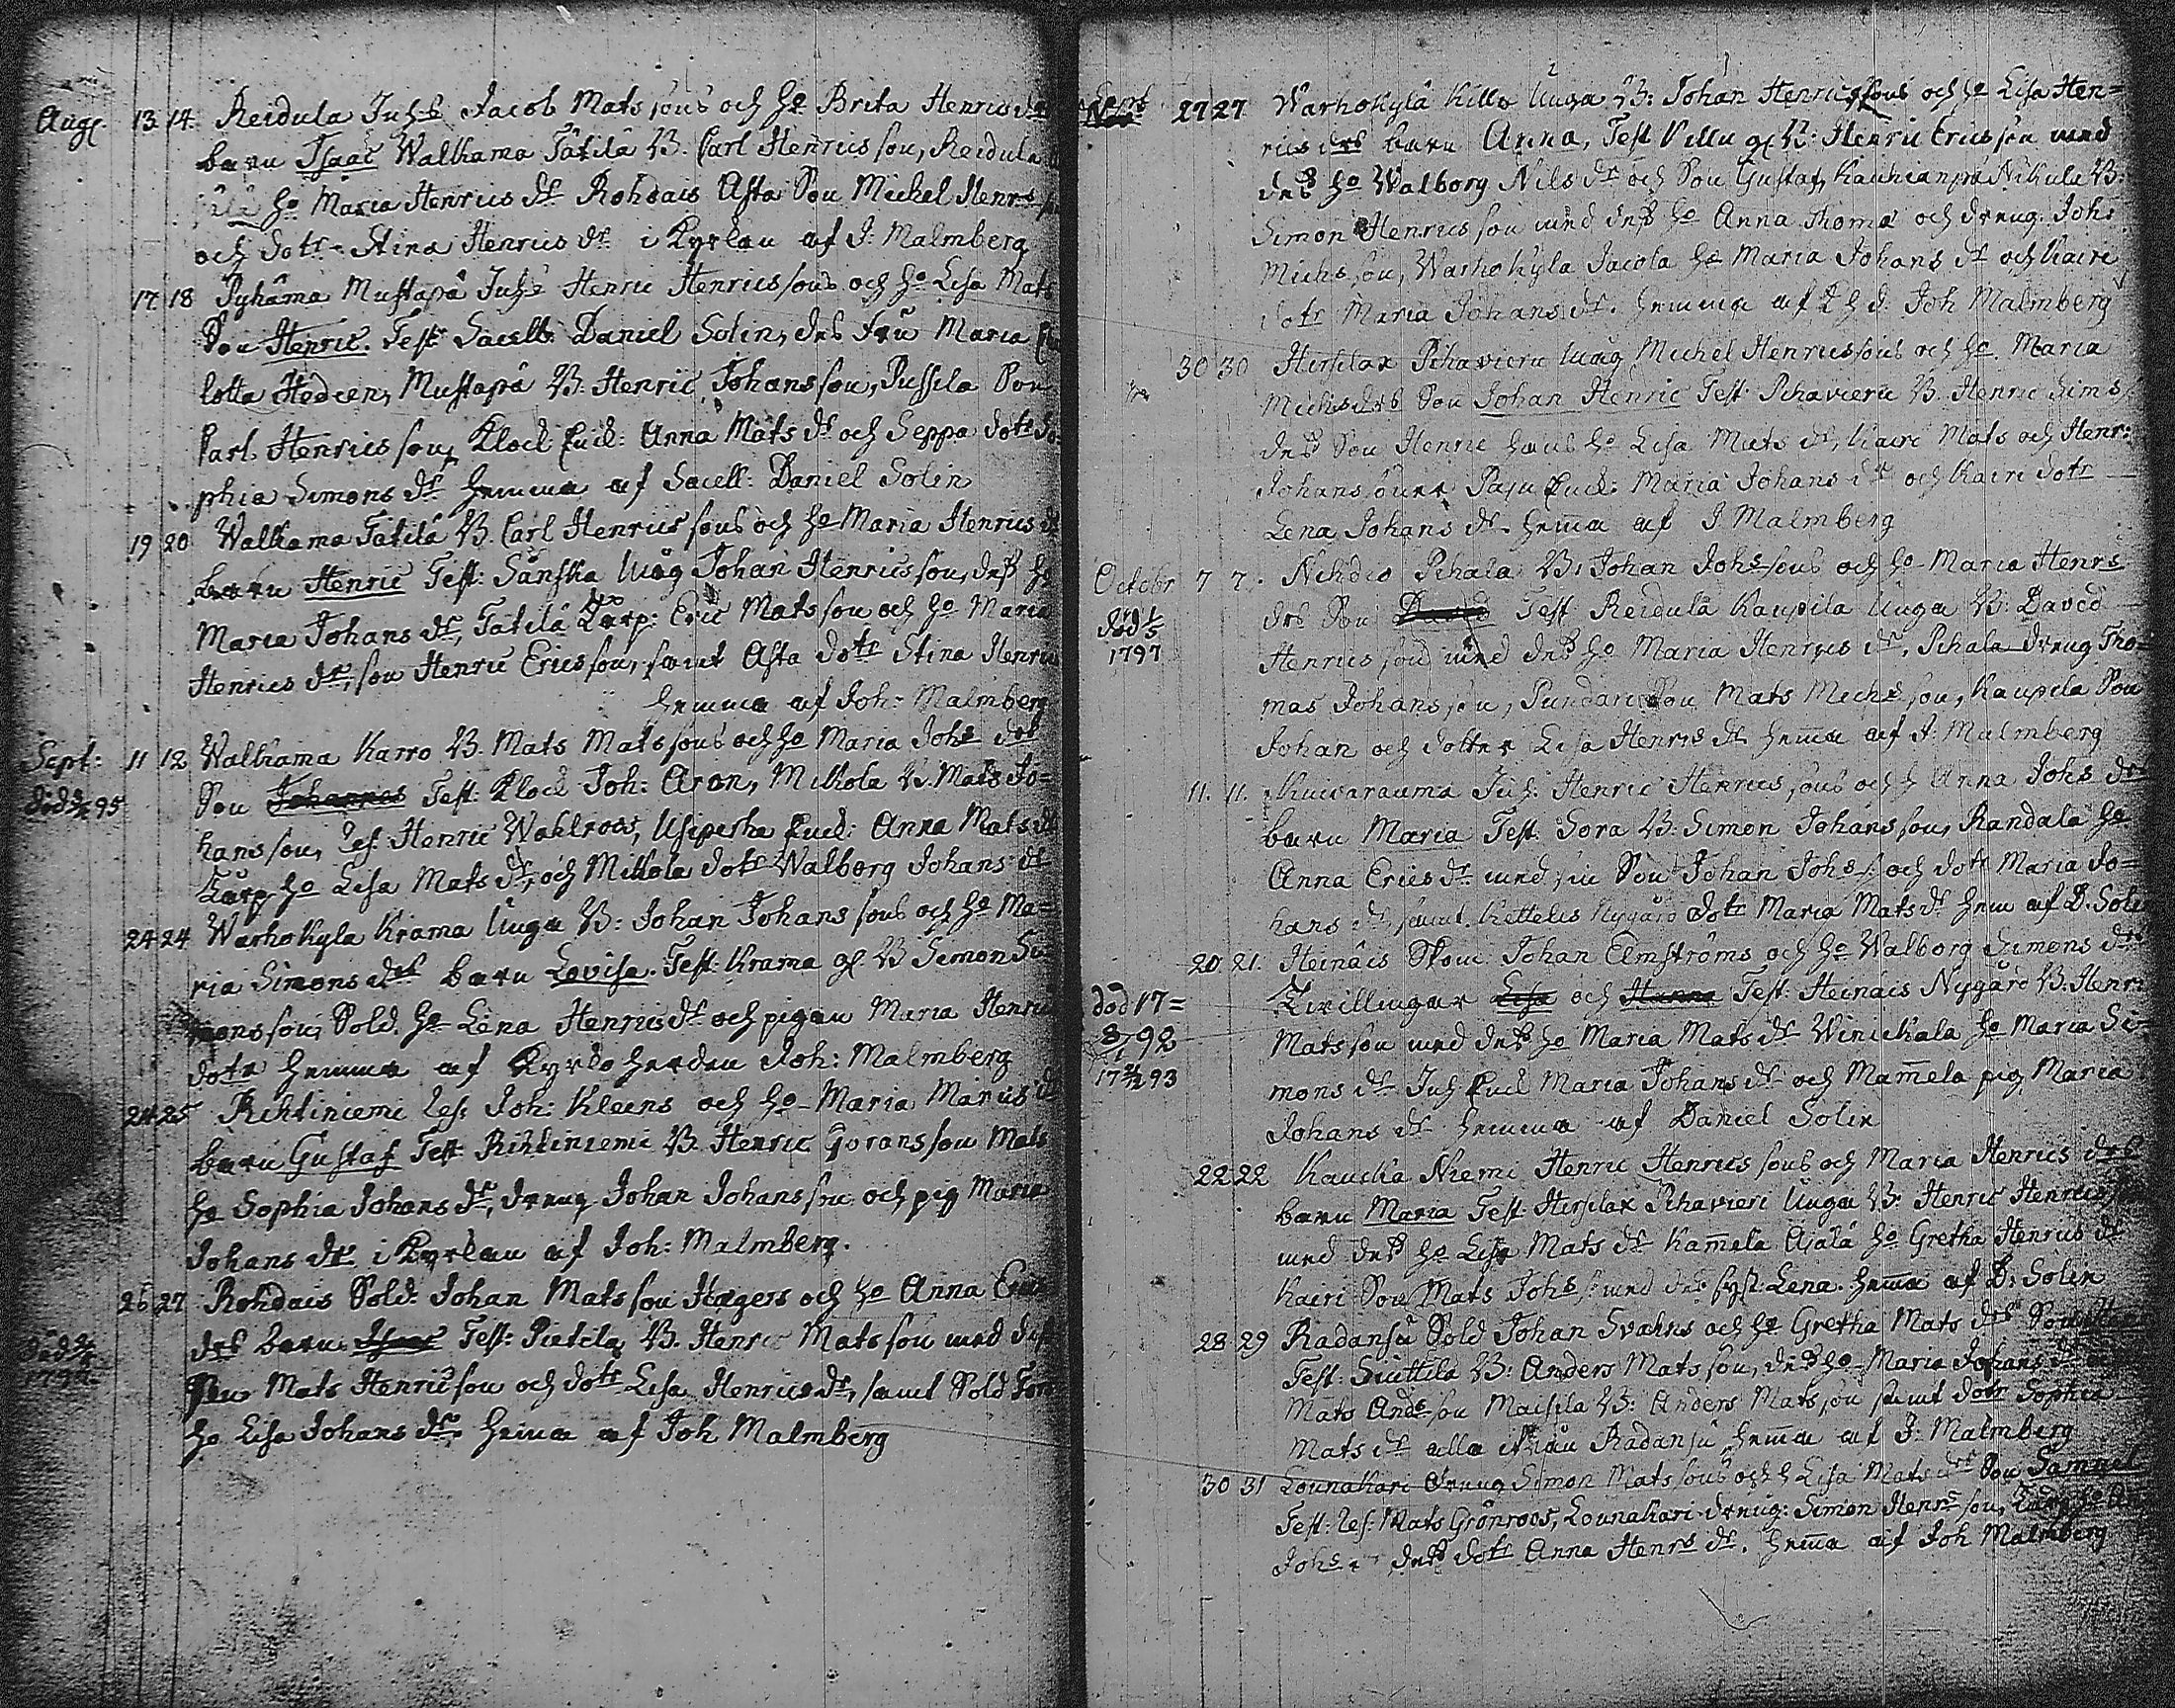 Aug. 13 14. Reidula Juhs Jacob Mats sons och ho Brita Henrics dr
barn Isaac Walkama Tätilä B. Carl Henrics son, Reidula
ho Maria Henrics dr Rohdais Asta Son Michel Henrs
och dotr Stina Henrics dr i Kyrkan af J: Malmberg
17 18 Pyhäma Mustapä Juhs Henric Henrics sons och ho Lisa Mats
Son Henric. Test Sacell. Daniel Solin, des fru Maria
lotta Hedeen, Mustapä B. Henric Johans son, Pussila Son
Carl Henrics son, Klock Enck: Anna Mats dr och Seppä dotr So
phia Simons dr hemma af Sacell: Daniel Solin
19 20 Walkama Tätilä B. Carl Henrics sons och ho Maria Henrics dr
barn Henric Test: Sänska Johan Henrics son, dess ho
Maria Johans dr, Tätilä Torp: Eric Mats son och ho Maria
Henrics dr, son Henric Erics son, samt Asta dotr Stina Henrics
hemma af Joh: Malmberg
Sept: 11 12 Walkama Karro B. Mats Mats sons och ho Maria Johs dotr
död 95 Son Johannes Test: Klock Joh: Aron, Mikkola B. Mats Jo=
hans son, Res. Henric Wahlroos, Enck: Anna Mats dr
Torp ho Lisa Mats dr, och Mikkola dotr Walborg Johans dr
24 24 Warhokyla Krama Unga B: Johan Johans sons och ho Ma=
ria Simons dotr barn Lovisa. Test: Krama gl. B Simon Si
mons son, Sold. ho Lena Henrics dr och pigan Maria Henrics
dotr hemma af Kyrko herden Joh: Malmberg
24 25 Rihtiniemi Res: Joh: Kleens och ho Maria Marcis dr
barn Gustaf Test Rihtiniemi B. Henric Görans son Mats
ho Sophia Johans dr, dräng Johan Johans son och pig Maria
Johans dr i Kyrkan af Joh: Malmberg.
26 27 Rohdais Sold: Johan Mats son Hægers och ho Anna Erics
död 1794 drs barn Isaac Test: Pietila B. Henric Mats son med dess
Son Mats Henrics son och dotr Lisa Henrics dr, samt Sold
ho Lisa Johans dr. hemma af Joh Malmberg
Sept 27 27 Warhokylä Killo Unga B: Johan Henrics sons och ho Lisa Hen=
rics drs barn Anna, Test Killu gl B: Henric Erics son med
dess ho Walborg Nils dr och Son Gustaf, Kauhianpä Nikula B:
Simon Henrics son med dess ho Anna Thomæ och dräng Johs
Michs son, Warhokyla Jacola ho Maria Johans dr och Kairi
dotr Maria Johans dr. hemma af Joh Malmberg
30 30 Hirsilax Pihavieru Michel Henrics sons och ho Maria
Michs drs Son Johan Henric Test Pihavieru B. Henric Sims
dess Son Henric hans ho Lisa Mats dr, Kairi Mats och Henr:
Johans söner Paju Enck: Maria Johans dr och Kairi dotr
Lena Johans dr. hemma af J. Malmberg
Octobr 7 7. Nihdio Pihala B: Johan Johs sons och ho Maria Henrs
död 1/5 drs Son David Test Reidula Kaupila Unga B: David
1797 Henrics son med dess ho Maria Henrics dr, Pihala dräng Tho=
mas Johans son, Pundari Son Mats Michs son, Kaupila Son
Johan och dotter Lisa Henrics dr hemma af J: Malmberg
11. 11. Kuivarauma Juh: Henric Henrics sons och h Anna Johs dr
barn Maria Test: Sora B: Simon Johans son, Randala ho
Anna Erics dr med sin Son Johan Johs s: och dotr Maria Jo=
hans dr samt Kettelis Nygård dotr Maria Mats dr hem af D. Solin
20 21. Heinäis Skom: Johan Elmströms och ho Walborg Simons dr
död 17= Twillingar Lisa och Hanna Test: Heinäis Nygård B. Henr:
8/1 92 Mats son med dess ho Maria Mats dr Winickala ho Maria Si=
17 93 mons dr Juh Enck Maria Johans dr och Mamela pig Maria
Johans dr hemma af Daniel Solin
22 22 Kaucka Niemi Henric Henrics sons och Maria Henrics drs
barn Maria Test Hirsilax Pihavieri Unga B: Henric Henrics
med dess ho Lisa Mats dr Kamela Ajala ho Gretha Henrics dr
Kairi Son Mats Johs s: med des syst. Lena. hemma af D: Solin
28 29 Radansu Sold Johan Svahns och ho Gretha Mats drs Son
Test: Siuttila B: Anders Mats son, dess ho Maria Johans dr
Mats Ands son Maisila B: Anders Mats son samt dotr Sophia
Mats dr alla ifrån Radansu hemma af J: Malmberg
30 31 Lounakari dräng Simon Mats sons och h Lisa Mats drs Son Samuel
Test: Res: Mats Grönroos, Lounakari dräng: Simon Henrs son,
Johs dess dotr Anna Henrs dr. hemma af Joh Malmberg